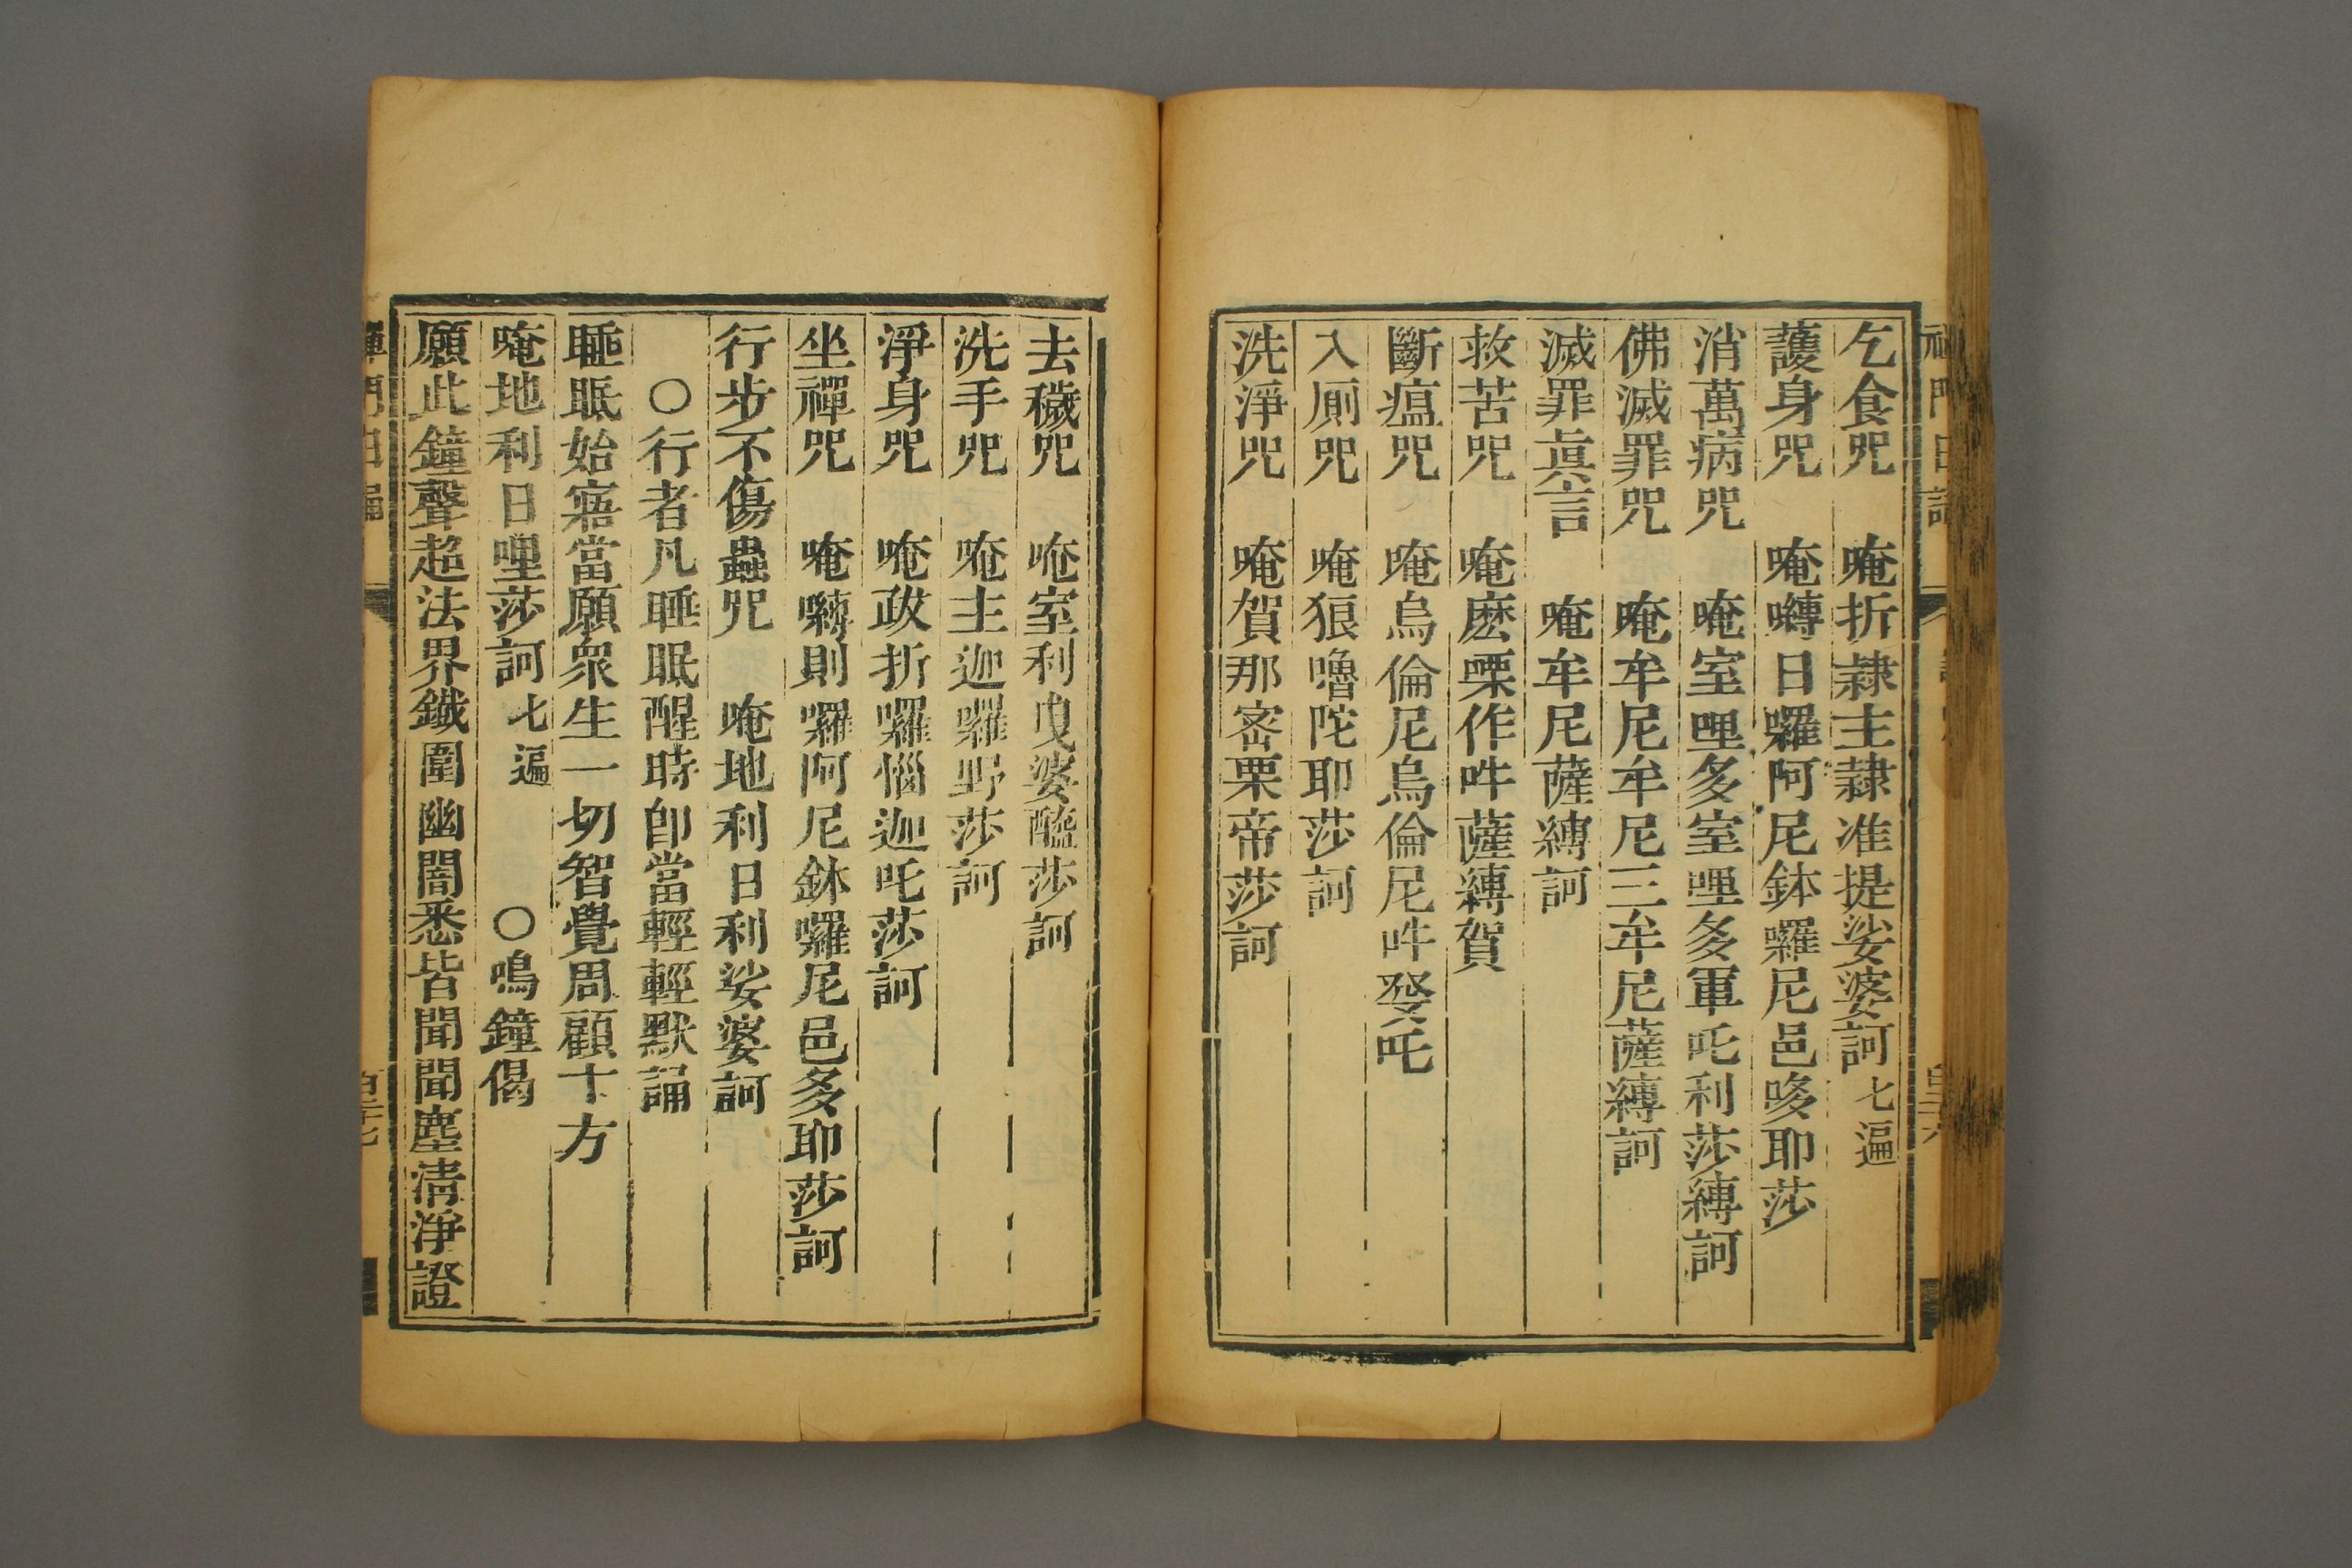 乞食咒　唵折隷主隷准提娑婆訶七遍
護身咒　唵嚩日囉阿尼鉢囉尼邑哆耶莎
消萬病咒　唵室哩多室哩多軍吒利莎縛訶
佛滅罪咒　唵牟尼牟尼三牟尼薩縛訶
滅罪眞言　唵牟尼薩縛訶
救苦咒　唵麽㗚作吽薩縛賀
斷瘟咒　唵烏倫尼烏倫尼吽癹吒
入厠咒　唵狼嚕陀耶莎訶
洗淨咒　唵賀那密栗帝莎訶
去穢咒　唵室利曳婆醯莎訶
洗手咒　唵主迦囉野莎訶
淨身咒　唵跋折囉惱迦吒莎訶
坐禪咒　唵嚩則囉阿尼鉢囉尼邑多耶莎訶
行步不傷蟲咒　唵地利日利娑婆訶
○行者凡睡眠醒時卽當輕輕默誦
睡眠始寤當願衆生一切智覺周顧十方
唵地利日哩莎訶七遍　○鳴鐘偈
願此鐘聲超法界鐵圍幽闇悉皆聞聞塵清淨證